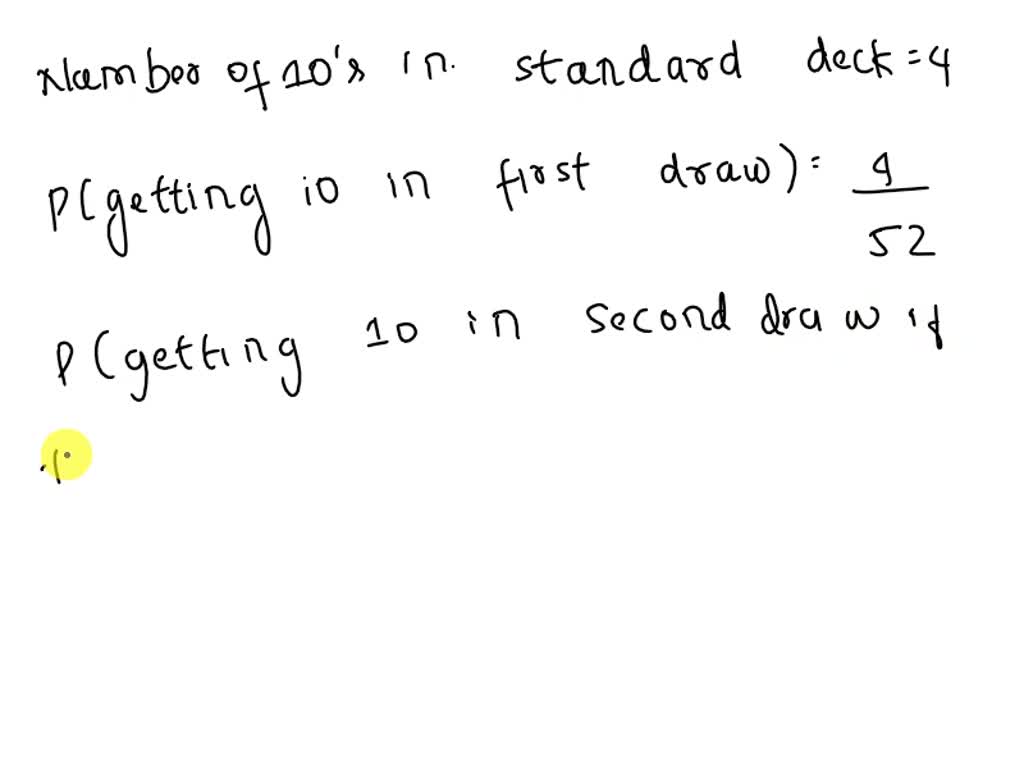 Number of 10's in standard deck = 4
P(getting 10 in first draw) = 4/52
P(getting 10 in second draw if